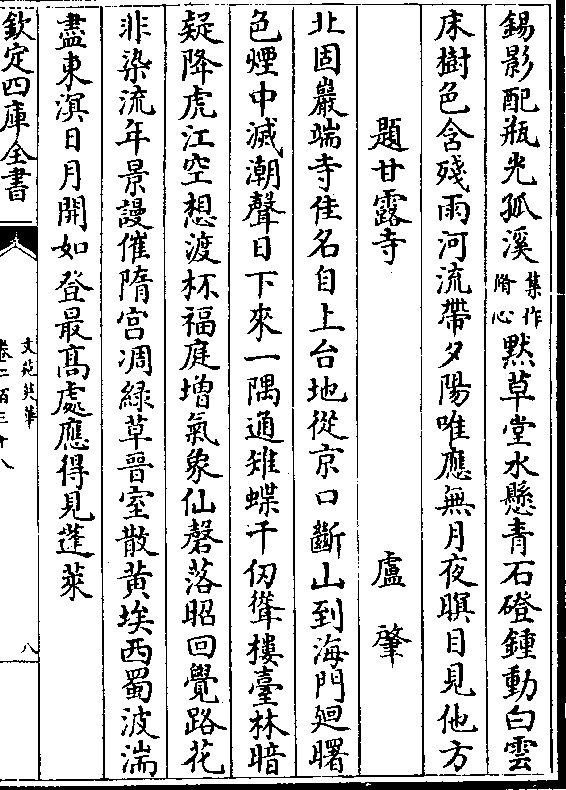 錫影配瓶光孤溪集作脩心默草堂水懸青石磴鍾動白雲
床樹色含殘雨河流帶夕陽唯應無月夜瞑目見他方
題甘露寺 盧肇
北固巖端寺佳名自上台地從京口斷山到海門廻曙
色煙中滅潮聲日下來一隅通雉蝶千仞聳樓臺林暗
疑降虎江空想渡杯福庭增氣象仙磬落昭回覺路花
非染流年景謾催隋宫凋綠草晉室散黄埃西蜀波湍
盡東溟日月開如登最髙處應得見蓬萊
欽定四庫全書
文苑英華
卷二百三十八
八